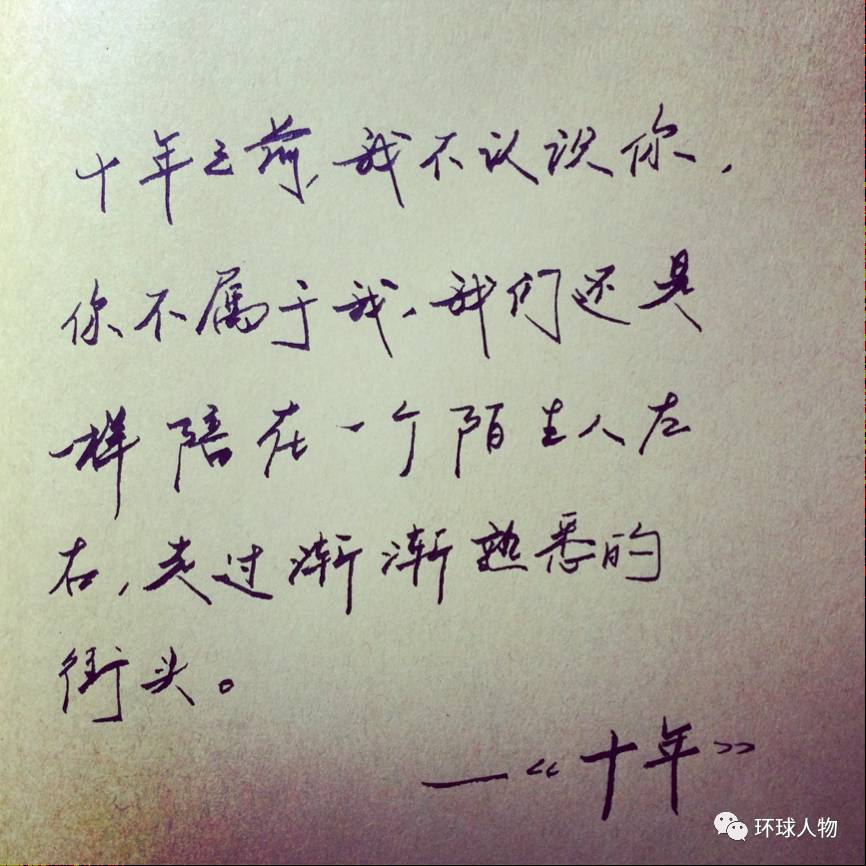 十年之前,我不认识你,
你不属于我,我们还是
一样陪在一个陌生人左
右,走过渐渐熟悉的
街头。
—《十年》
环球人物